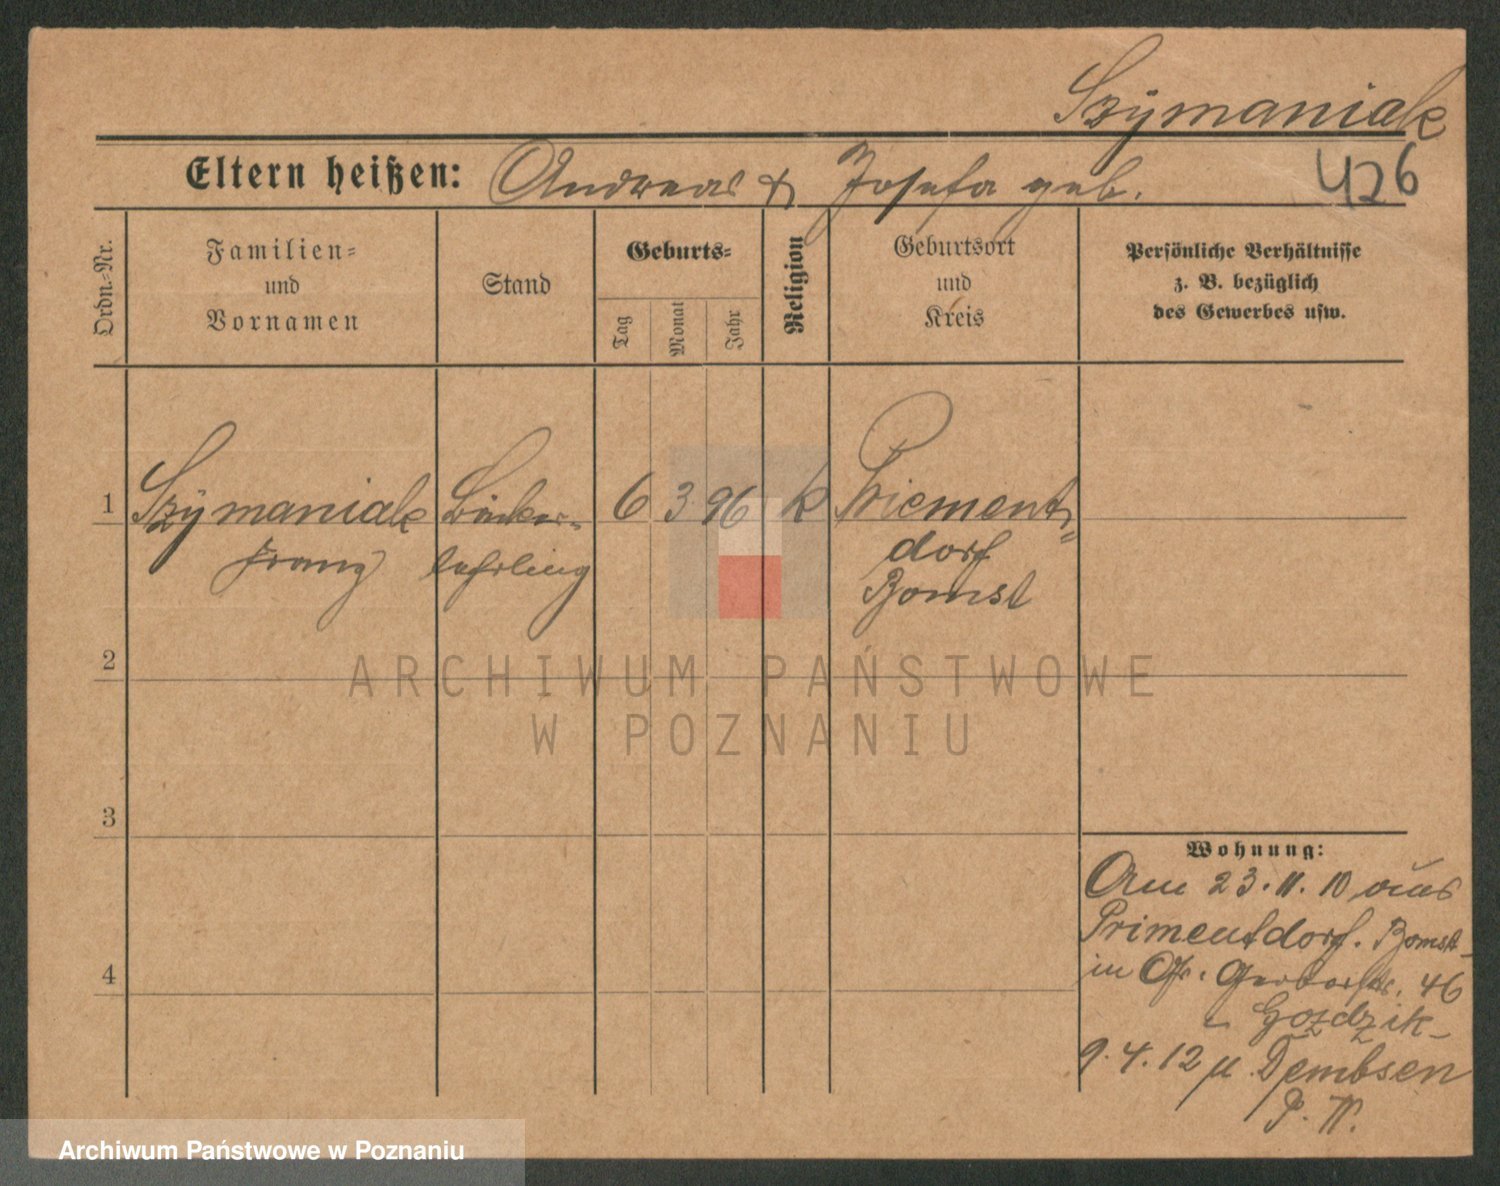 Szÿmaniak
Eltern heißen: Andreas & Josefa geb.
426
Ordn.-Nr.
Familien-
und
Vornamen
Stand
Geburts-
Tag
Monat
Jahr
Religion
Geburtsort
und
Kreis
Persönliche Verhältnisse
z. B. bezüglich
des Gewerbes usw.
1
Szÿmaniak
Franz
Bäcker-
lehrling
6
3
96
k
Priments-
dorf
Bomst
2
3
4
Wohnung:
Am 23.11.10 aus
Primentdorf. Bomst
in Gr. Gerberstr. 46
- Gozdzik -
9.4.12 n. Dembsen
P. W.
ARCHIWUM PAŃSTWOWE
W POZNANIU
Archiwum Państwowe w Poznaniu